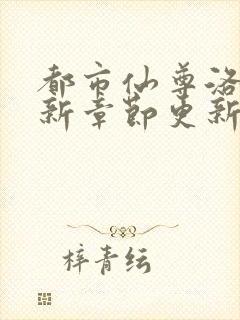 都市仙尊洛
新章节更新
梓青纭